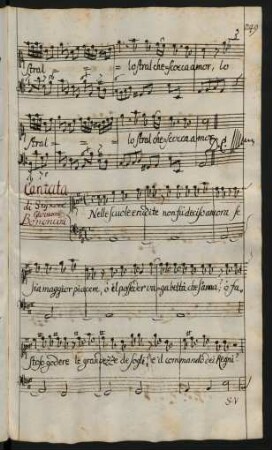 249
stral = = = lo stral che scocca amor, lo
stral = = = lo stral che scocca amor
Cantata
di Sig.nore
Giovanni
Bononcini
Nelle scuole erudite non fù deciso ancora se
sia maggior piacere, ò il posseder vaga beltà che s'ama; ò fa_
stoso godere le grandezze de sogli, e il commando dei Regni
S.V